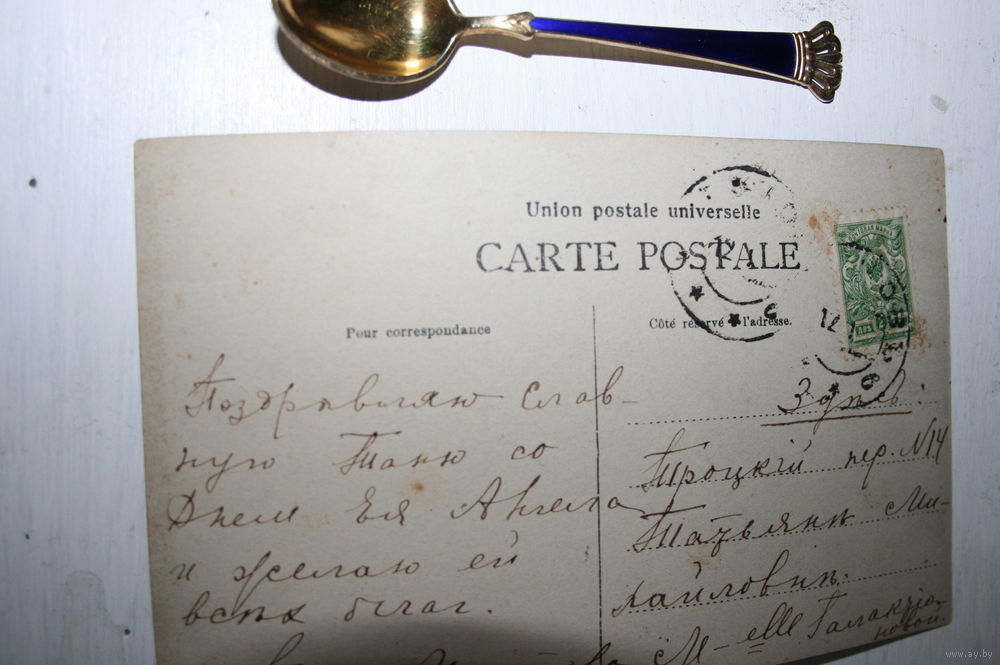 Union postale universelle
CARTE POSTALE
Pour correspondance
Côté réservé à l'adresse.
Поздравляю слав-
ную Таню со
Днем Ея Ангела
и желаю ей
всѣх благ.
Здѣсь:
Троцкій пер. N14
Татьянѣ Ми-
хайловнѣ.
M-elle Галактіо-
новой.
www.ay.by